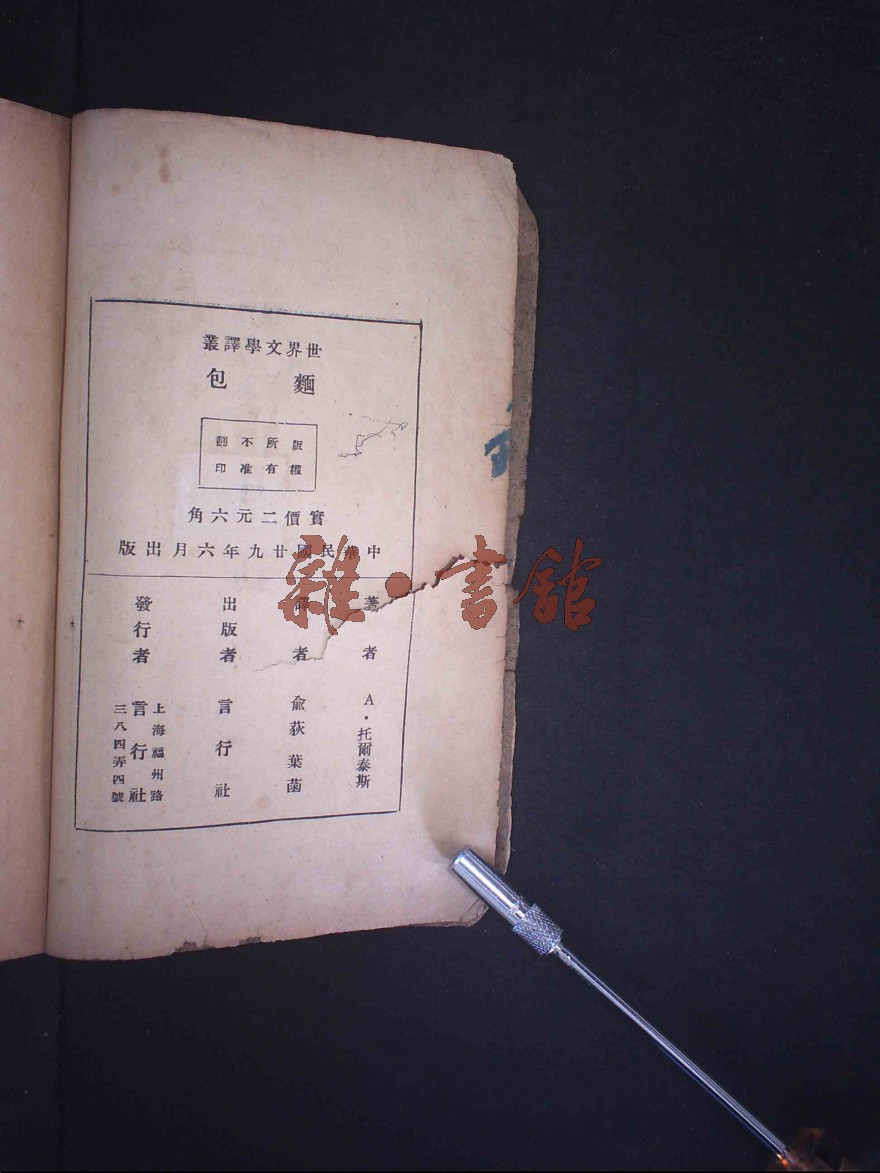 世界文學譯叢
麵包
版權所有不准翻印
實價二元六角
中華民國廿九年六月出版
著者 A·托爾泰斯
譯者 俞荻 葉菡
出版者 言行社
發行者 言行社
上海福州路
三八四弄四號
雜·書館